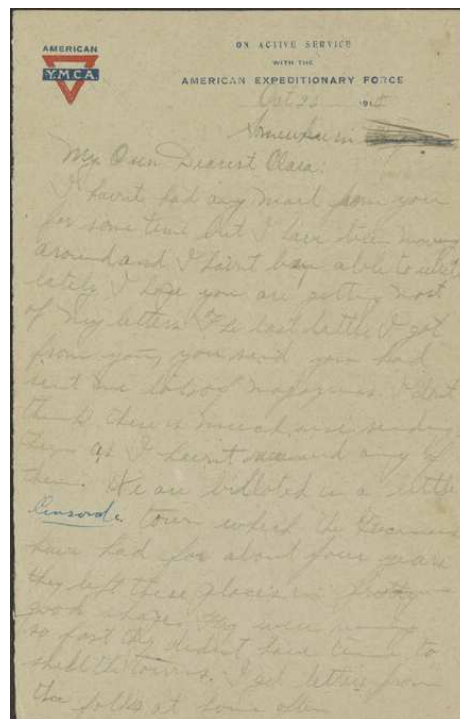 AMERICAN
Y.M.C.A.
ON ACTIVE SERVICE
WITH THE
AMERICAN EXPEDITIONARY FORCE
Oct 191
Somewhere in
My Own Dearest Clara:
I havn't had any mail from you
for some time but I have been moving
around and I havn't been able to write
lately I hope you are getting most
of my letters. The last letter I got
from you, you said you had
sent me lots of magazines. I don't
think there is much use sending
them as I havn't received any of
them. We are billoted in a little
Censored town which the Germans
have had for about four years
they left these places in pretty
good shape. They were
so fast they dident have time to
shell the towns. I got letters from
the folks at home